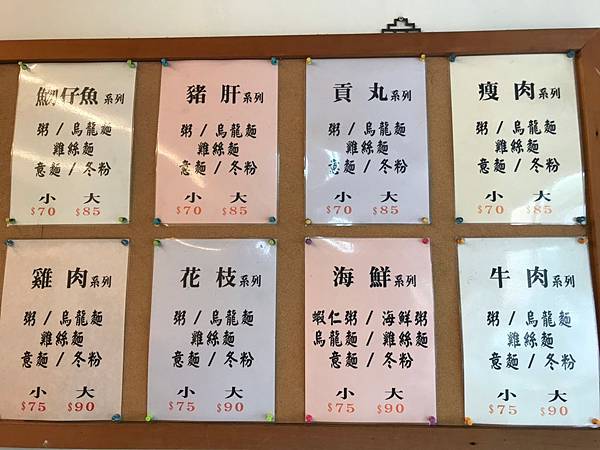 魩仔魚系列
粥 / 烏龍麵
雞絲麵
意麵 / 冬粉
小 大
$70 $85
豬肝系列
粥 / 烏龍麵
雞絲麵
意麵 / 冬粉
小 大
$70 $85
貢丸系列
粥 / 烏龍麵
雞絲麵
意麵 / 冬粉
小 大
$70 $85
瘦肉系列
粥 / 烏龍麵
雞絲麵
意麵 / 冬粉
小 大
$70 $85
雞肉系列
粥 / 烏龍麵
雞絲麵
意麵 / 冬粉
小 大
$75 $90
花枝系列
粥 / 烏龍麵
雞絲麵
意麵 / 冬粉
小 大
$75 $90
海鮮系列
蝦仁粥 / 海鮮粥
烏龍麵 / 雞絲麵
意麵 / 冬粉
小 大
$75 $90
牛肉系列
粥 / 烏龍麵
雞絲麵
意麵 / 冬粉
小 大
$75 $90